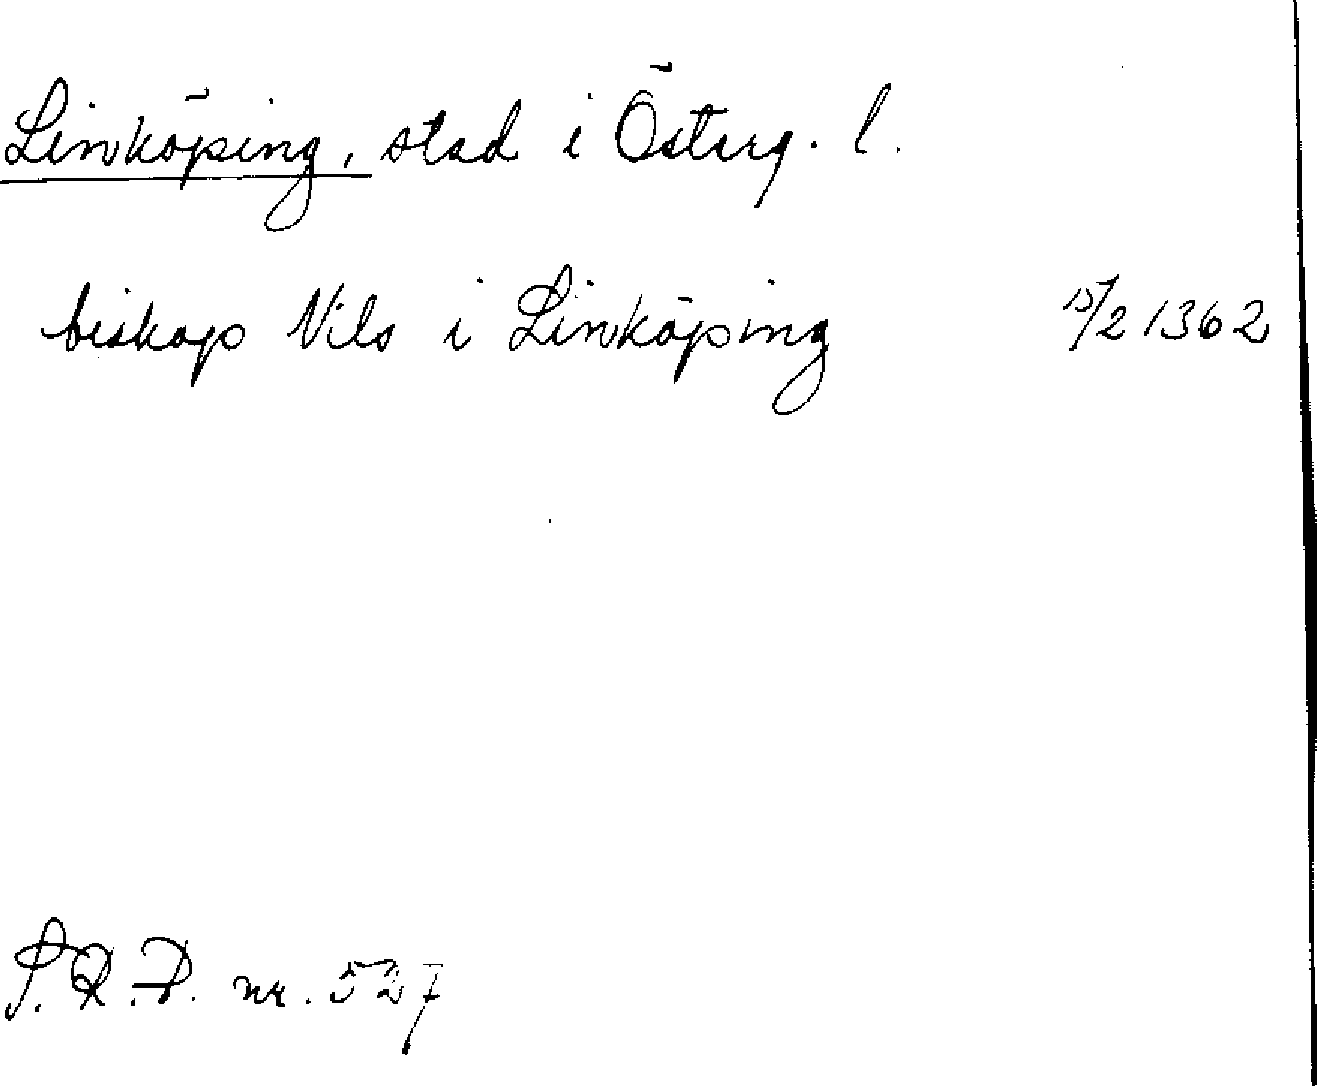 Linköping, stad i Österg. l.
biskop Nils i Linköping 15/2 1362
S.R.P. nr. 527